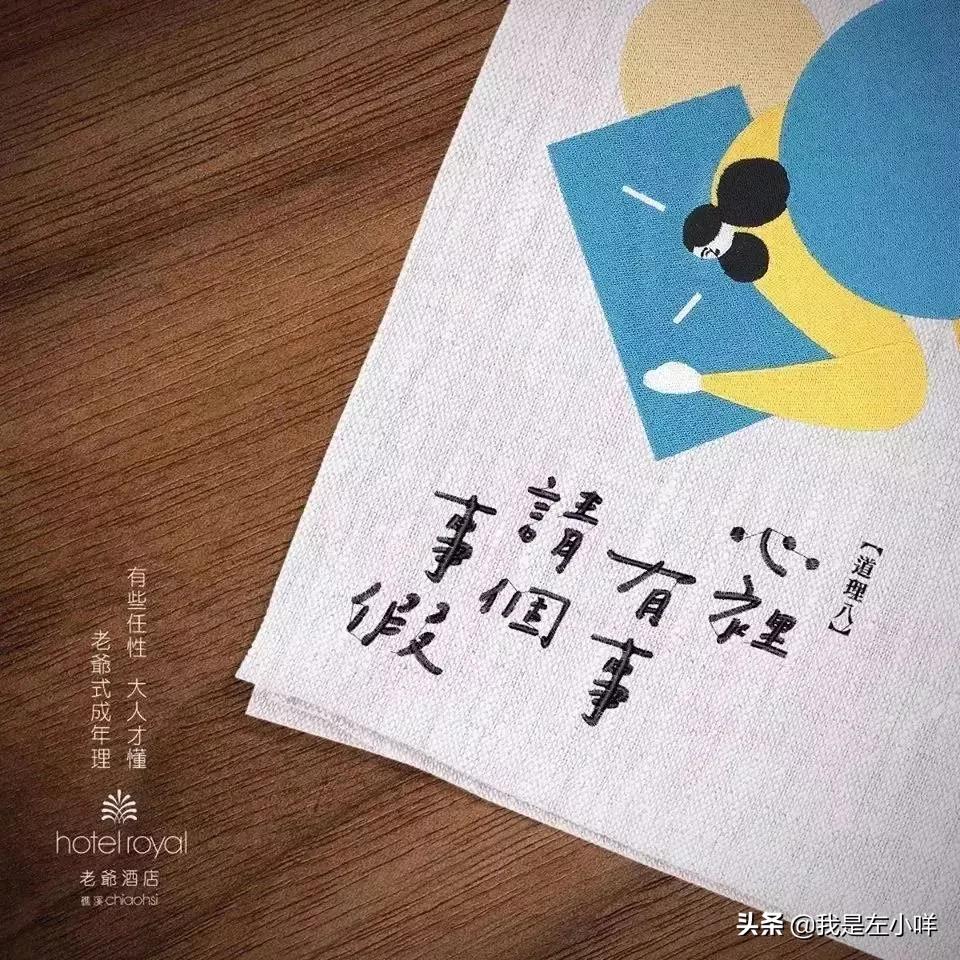 【道理八】
心裡
有事
請個
事假
有些任性 大人才懂
老爺式成年理
hotel royal
老爺酒店
礁溪 chiaohsi
头条 @我是左小咩